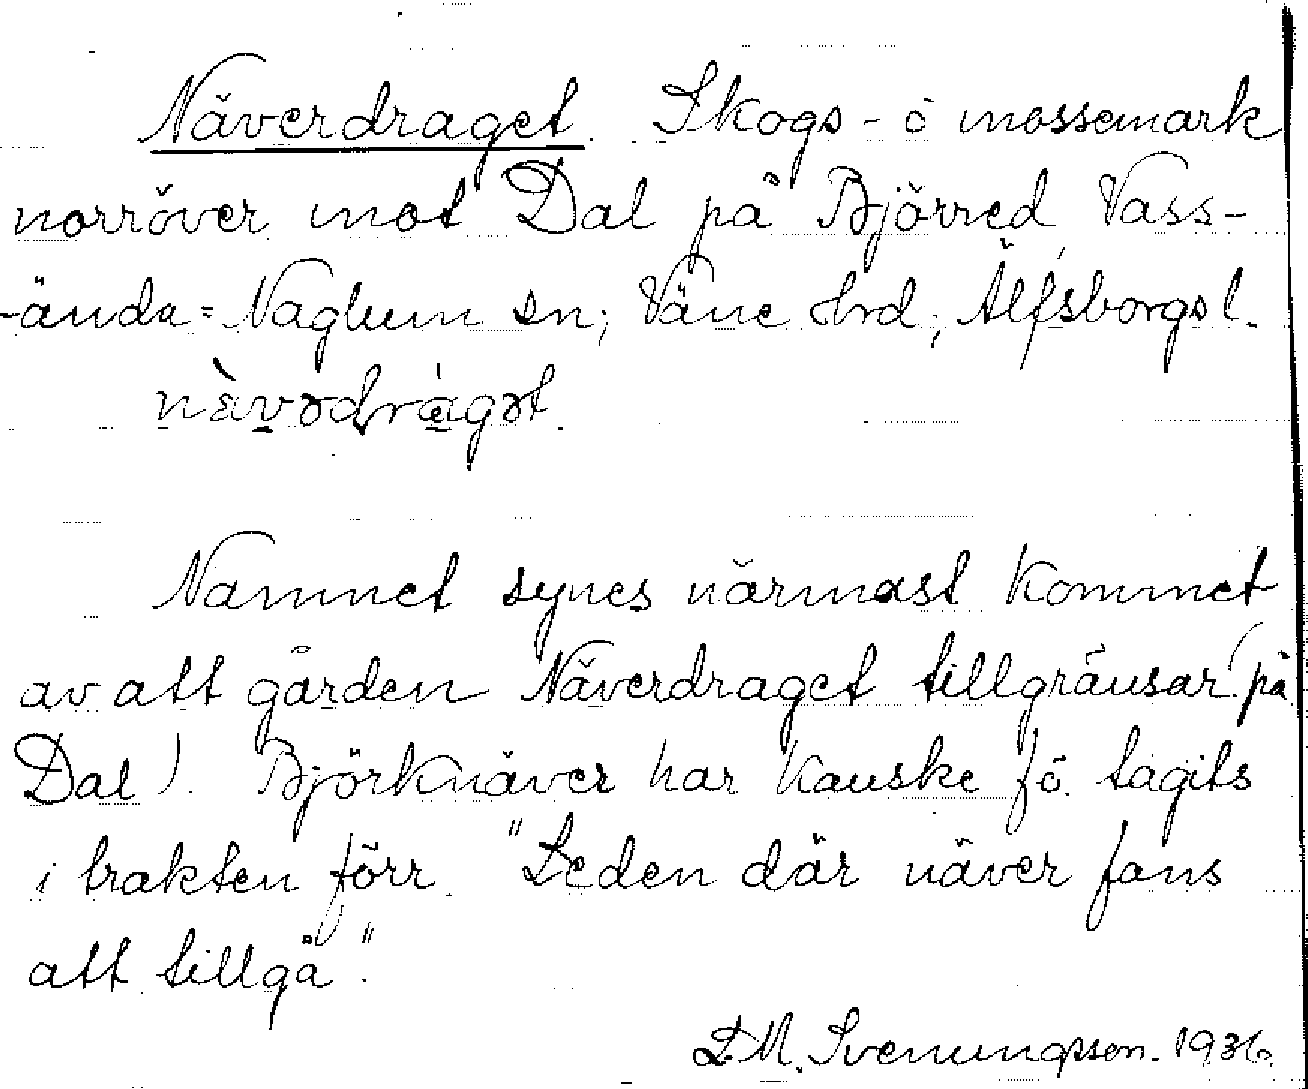 Näverdraget. Skogs- o mossemark
norröver mot Dal på Björred Vass-
-ända=Naglum sn; Väne Hrd; Älfsborgs l.
nàvədrágət.
Namnet synes närmast kommet
av att gården Näverdraget tillgränsar (på
Dal). Björknäver har kanske fö. tagits
i trakten förr. "Leden där näver fans
att tillgå".
L.M. Svenungsson. 1936.